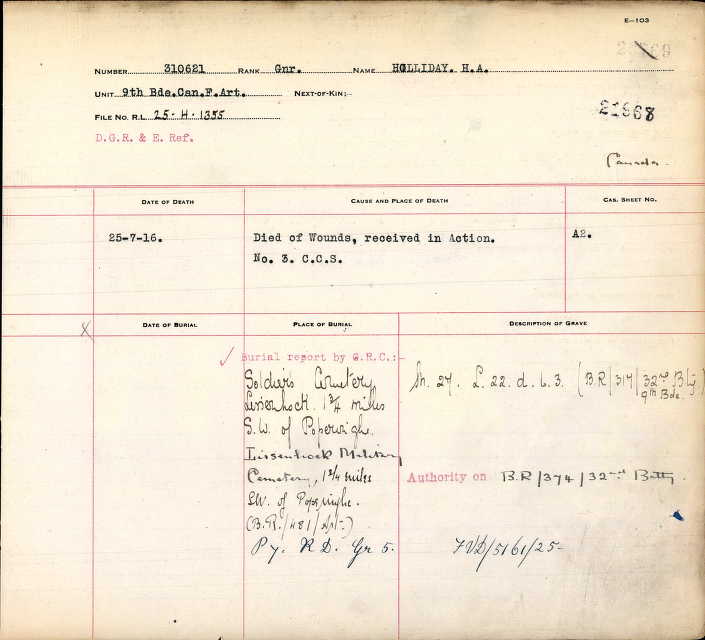 E-103
NUMBER 310621 RANK Gnr. NAME HOLLIDAY. H.A.
UNIT 9th Bde.Can.F.Art. NEXT-OF-KIN:-
21868
FILE NO. R.L. 25-H-1355
D.G.R. & E. Ref.
Canada.
DATE OF DEATH CAUSE AND PLACE OF DEATH CAS. SHEET NO.
25-7-16. Died of Wounds, received in Action. A2.
No. 3. C.C.S.
X DATE OF BURIAL PLACE OF BURIAL DESCRIPTION OF GRAVE
Burial report by G.R.C.:-
Soldiers Cemetery Sh. 27. L. 22. d. 6.3. (B.R/314/32nd Bty
Lissenhoek. 1 3/4 miles 9th Bde.
S.W. of Poperinghe.
Lissenhoek Military
Cemetery, 1 3/4 miles Authority on B.R/374/32nd Batty.
S.W. of Poperinghe.
(B.R./481/
R D. Gr 5. 7VD/5161/25-